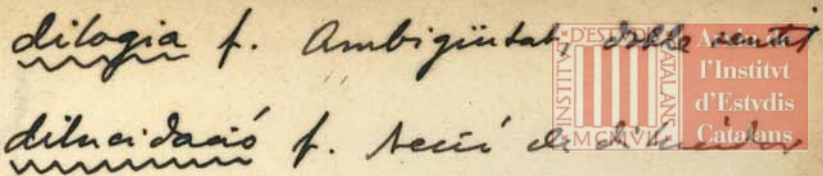 dilogia f. Ambigüitat, doble sentit
dilucidació f. Acció de dilucidar
INSTITVT D'ESTVDIS CATALANS
MCMVII
Arxiu de
l'Institvt
d'Estvdis
Catalans